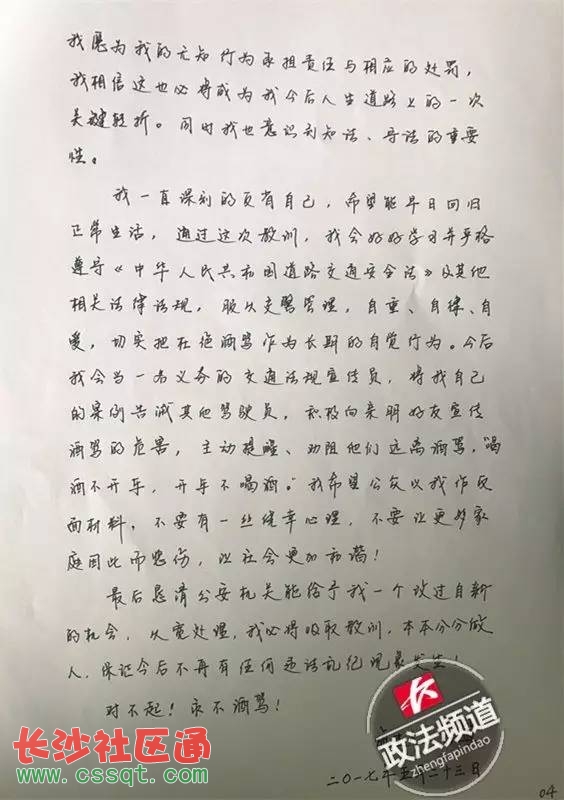 我愿为我的无知行为承担责任与相应的处罚，
我相信这也必将成为我今后人生道路上的一次
关键转折。同时我也意识到知法、守法的重要
性。
我一直深刻的反省自己，希望能早日回归
正常生活，通过这次教训，我会好好学习并严格
遵守《中华人民共和国道路交通安全法》及其他
相关法律法规，服从交警管理，自重、自律、自
爱，切实把拒绝酒驾作为长期的自觉行为。今后
我会当一名义务的交通法规宣传员，将我自己
的案例告诫其他驾驶员，积极向亲朋好友宣传
酒驾的危害，主动提醒、劝阻他们远离酒驾，“喝
酒不开车，开车不喝酒。”我希望公众以我作反
面材料，不要有一丝侥幸心理，不要让更多家
庭因此而悲伤，让社会更加和谐！
最后恳请公安机关能给予我一个改过自新
的机会，从宽处理，我必将吸取教训，本本分分做
人，保证今后不再有任何违法乱纪现象发生！
对不起！永不酒驾！
二〇一七年五月二十三日
04
政法频道
zhengfapindao
长沙社区通
www.cssqt.com